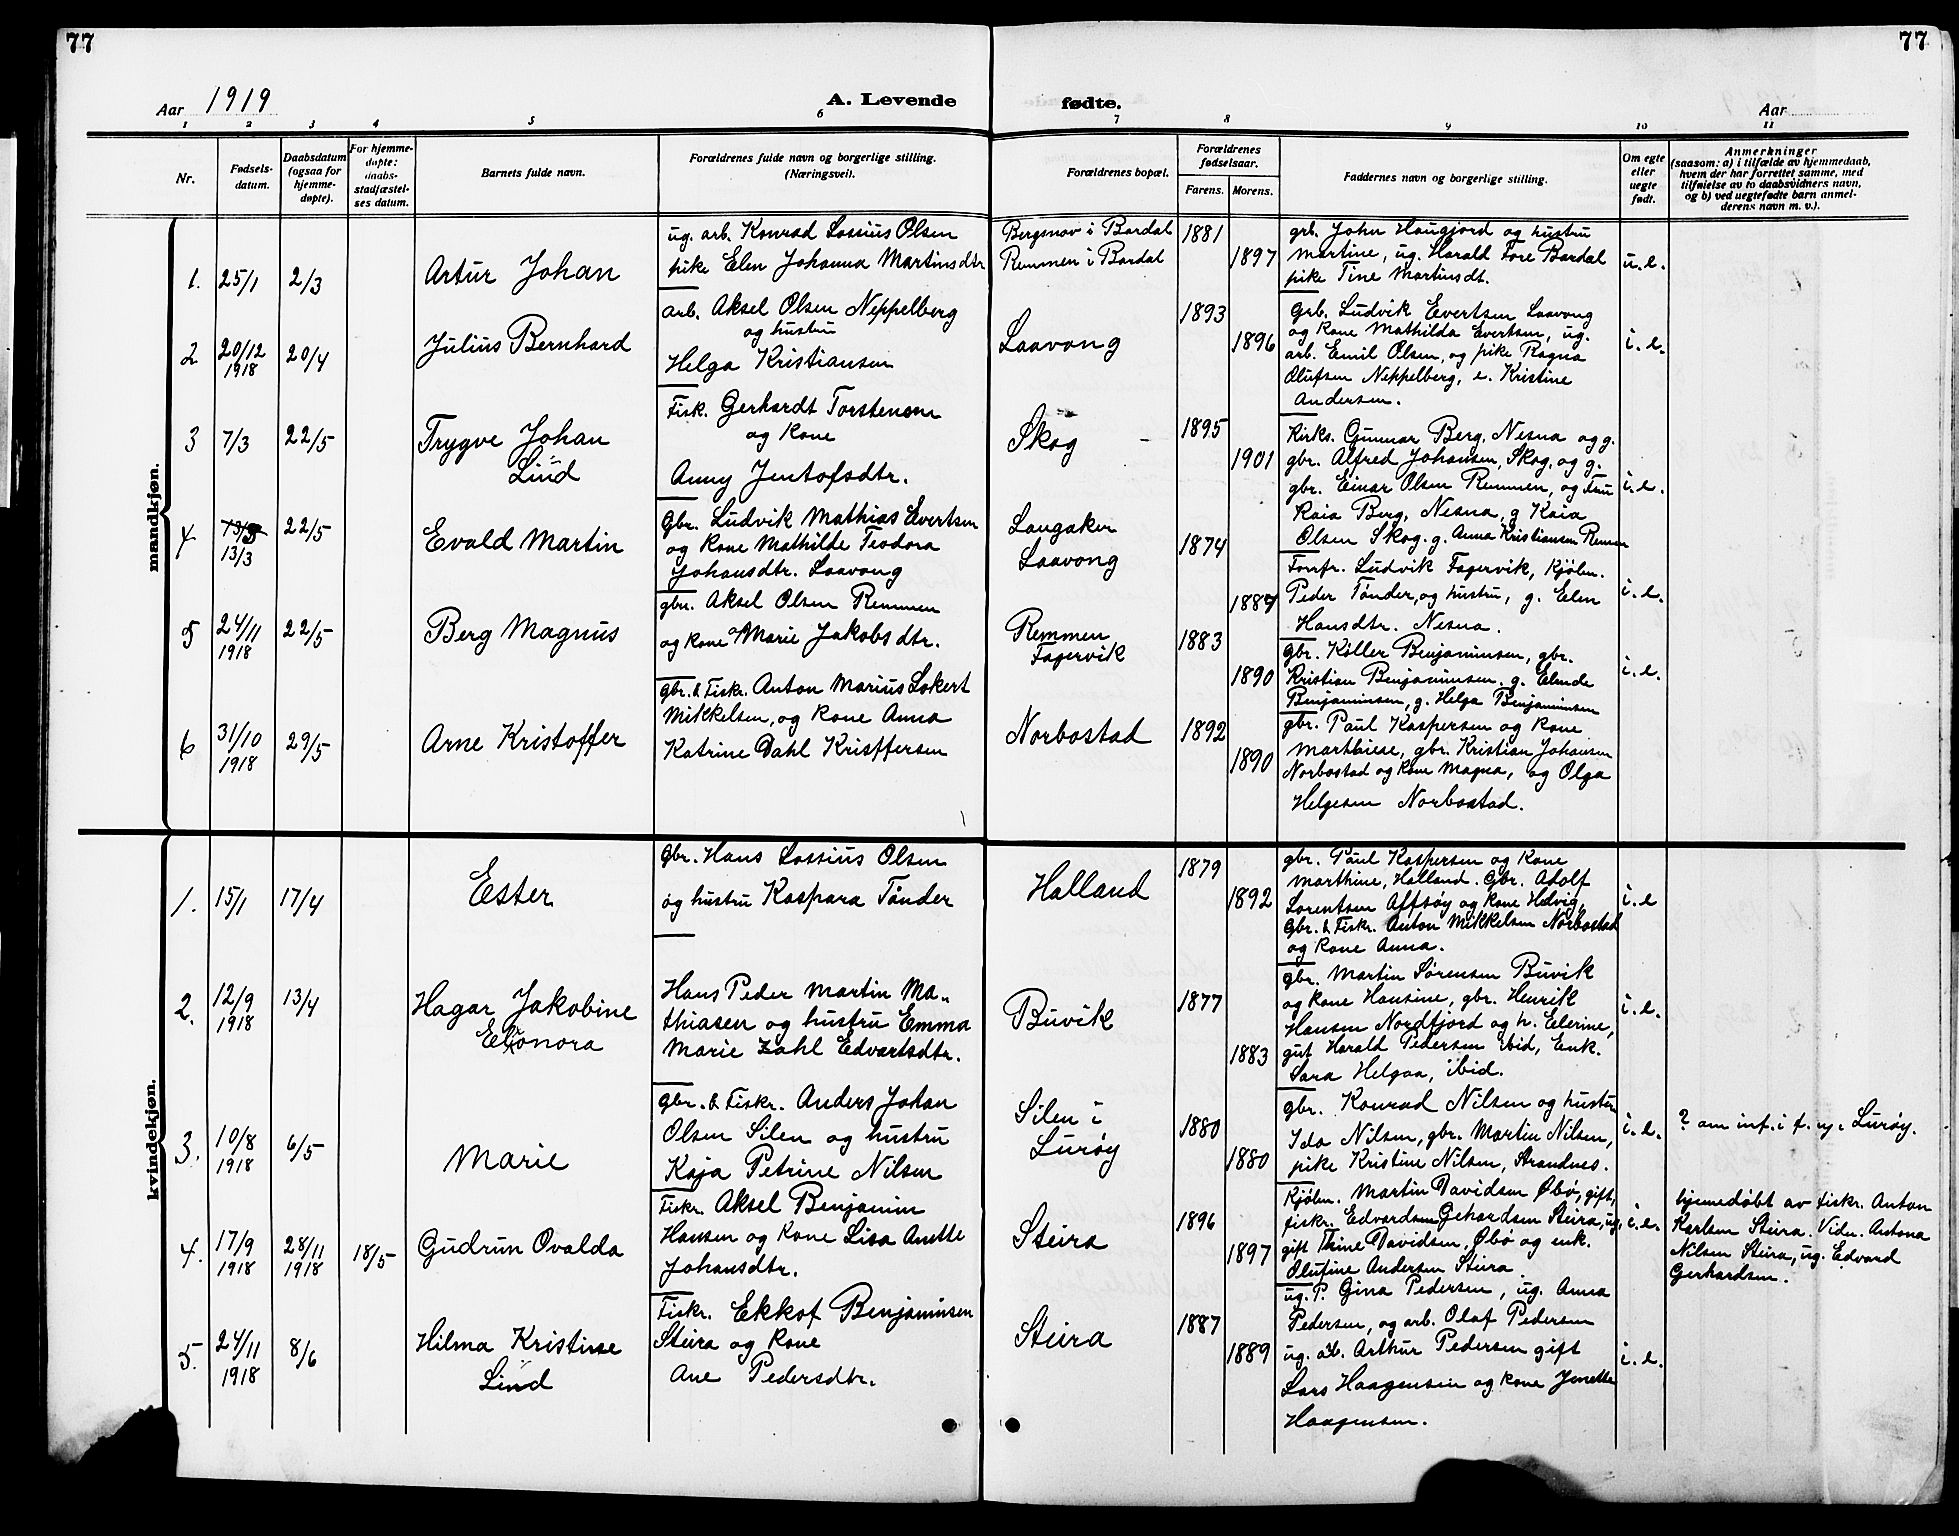 77
77
Aar 1919
A. Levende
fødte.
Aar
1 2 3 4 5 6 7 8 9 10 11
Nr.
Fødsels-
datum.
Daabsdatum
(ogsaa for
hjemme-
døpte).
For hjemme-
døpte:
daabs-
stadfæstel-
ses datum.
Barnets fulde navn.
Forældrenes fulde navn og borgerlige stilling.
(Næringsvei).
Forældrenes bopæl.
Forældrenes
fødselsaar.
Farens. Morens.
Faddernes navn og borgerlige stilling.
Om egte
eller
uegte
født.
Anmerkninger
(saasom: a) i tilfælde av hjemmedaab,
hvem der har forrettet samme, med
tilføielse av to daabsvidners navn,
og b) ved uegtefødte barn anmel-
derens navn m. v.).
mandkjøn.
1. 25/1 2/3
Artur Johan
ug. arb. Konrad Lossius Olsen
pike Elen Johanna Martinsdtr
Bergsnov i Bardal
Remmen i Bardal
1881
1897
grb. John Haugjord og hustru
Martine, ug. Harald Fore Bardal
pike Tine Martinsdt.
u.e.
2 20/12 1918 20/4
Julius Bernhard
arb. Aksel Olsen Neppelberg
og hustru
Helga Kristiansen
Laavong
1893
1896
Grb. Ludvik Evertsen Laavong
og kone Mathilda Evertsen, ug.
arb. Emil Olsen, og pike Ragna
Olufsen Neppelberg, e. Kristine
Andersen.
i.e.
3 7/3 22/5
Trygve Johan
Lind
Fisk. Gerhardt Torstensen
og kone
Anny Jentofsdtr.
Skog
1895
1901
Kirks. Gunnar Berg, Nesna og g.
gbr. Alfred Johansen, Skog, og g.
gbr. Einar Olsen Remmen, og Fru
Kaia Berg, Nesna, g Kaia
Olsen Skog. g. Anna Kristiansen Remen
i.e.
4 13/3 22/5
Evald Martin
Gbr. Ludvik Mathias Evertsen
og kone Mathilde Teodora
Johansdtr. Laavong
Langaker
Laavong
1874
1884
Forrfr. Ludvik Fagervik, Kjøbm.
Peder Tønder, og hustru, g. Elen
Hansdtr. Nesna.
i.e.
5 24/11 1918 22/5
Berg Magnus
gbr. Aksel Olsen Remmen
og kone Marie Jakobsdtr.
Remmen
Fagervik
1883
1890
gbr. Køller Benjaminsen, gbr.
Kristian Benjaminsen, g. Elmde
Benjaminsen, g. Helga Benjaminsen
i.e.
6 31/10 1918 29/5
Arne Kristoffer
gbr. & Fiskr. Anton Marius Lokert
Mikkelsen, og kone Anna
Katrine Dahl Krisffersen
Norbostad
1892
1890
gbr. Paul Kaspersen og kone
Marthine, gbr. Kristian Johansen
Norbostad og kone Magna, og Olga
Helgesen Norbostad.
kvindekjøn.
1. 15/1 17/4
Ester
Gbr. Hans Lossius Olsen
og hustru Kaspara Tønder
Halland
1879
1892
gbr. Paul Kaspersen og kone
Marthine, Halland. Gbr. Adolf
Lorentsen Alfsøy og kone Helvig,
Gbr. & Fiskr. Anton Mikkelsen Norbostad
og kone Anna.
i.e
2. 12/9 1918 13/4
Hagar Jakobine
Elonora
Hans Peder Martin Ma-
thiasen og hustru Emma
Marie Zahl Edvartsdtr.
Buvik
1877
1883
gbr. Martin Sørensen Buvik
og kone Hansine, gbr. Henrik
Hansen Nordfjord og h. Elerine,
gut Harald Pedersen ibid, Enk.
Sara Helgaa, ibid.
i.e.
3. 10/8 1918 6/5
Marie
gbr. & Fiskr. Anders Johan
Olsen Silen og hustru
Kaja Petrine Nilsen
Silen i
Lurøy
1880
1880
gbr. Konrad Nilsen og hustru
Ida Nilsen, gbr. Martin Nilsen,
pike Kristine Nilsen, Strandnes.
i.e.
? om inf. i f. ry. i Lurøy.
4. 17/9 1918 28/11 1918 18/5
Gudrun Ovalda
Fiskr. Aksel Benjamin
Hansen og kone Lisa Anette
Johansdtr.
Steira
1896
1897
Kjøbm. Martin Davidsen Øbø, gift,
fiskr. Edvardsen Gehardsen Steira, ug,
gift Thine Davidsen, Øbø og enk.
Olufine Andersen Steira
i.e.
hjemedøbt av fiskr. Anton
Karlsen Steira. Vidn. Antona
Nilsen Steira, ug. Edvard
Gerhardsen.
5. 24/11 1918 8/6
Hilma Kristine
Lind
Fiskr. Ekkof Benjaminsen
Steira og kone
Ane Pedersdtr.
Steira
1887
1889
ug. P. Gina Pedersen, ug. Anna
Pedersen, og arb. Olaf Pedersen
ug. arb. Arthur Pedersen gift
Lars Haagensen og kone Jenette
Haagensen.
i.e.